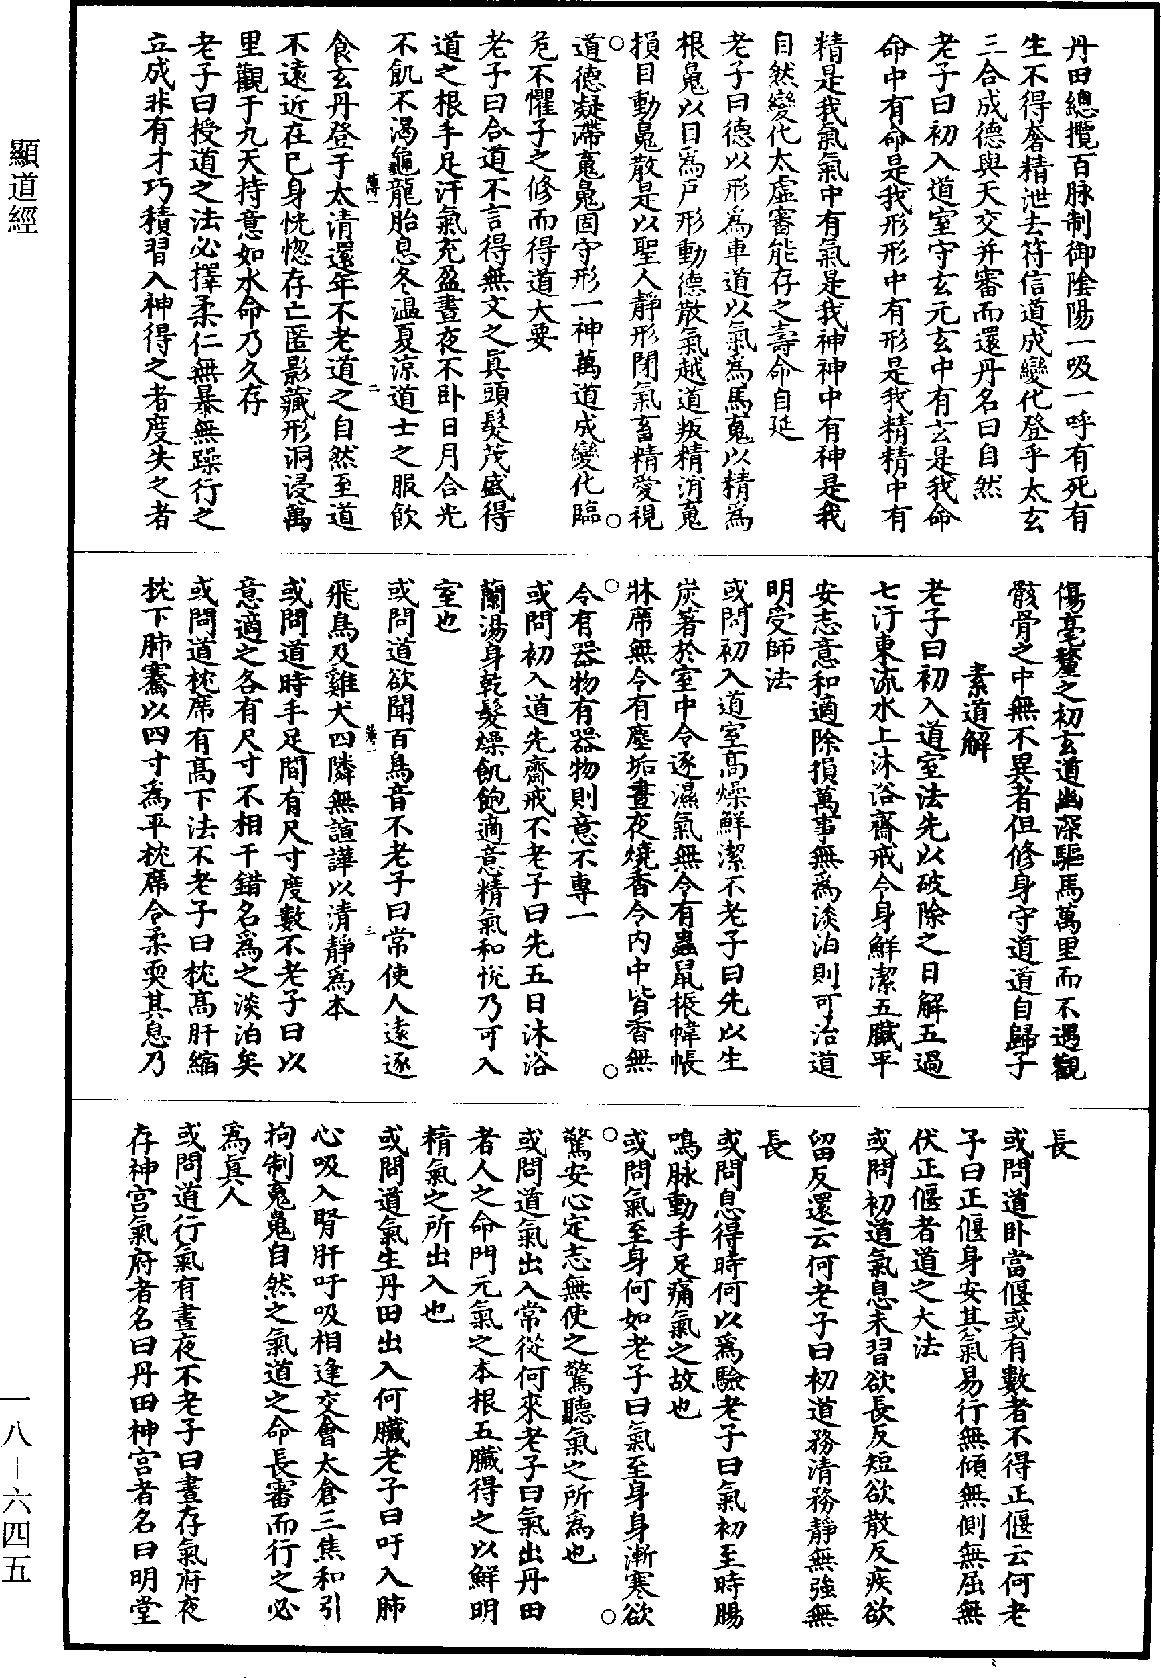 丹田總攬百脉制御陰陽一吸一呼有死有
生不得奢精泄去符信道成變化登乎太玄
三合成德與天交并審而還丹名曰自然
老子曰初入道室守玄元玄中有玄是我命
命中有命是我形形中有形是我精精中有
精是我氣氣中有氣是我神神中有神是我
自然變化太虛審能存之壽命自延
老子曰德以形為車道以氣為馬䰟以精為
根䰟以目為戶形動德散氣越道叛精消䰟
損目動䰟散是以聖人靜形閉氣畜精愛視
道德凝滯䰟䰟固守形一神萬道成變化臨
危不懼子之修而得道大要
老子曰合道不言得無文之真頭髮茂盛得
道之根手足汗氣充盈晝夜不卧日月合光
不飢不渴龜龍胎息冬溫夏涼道士之服飲
薄一 二
食玄丹登于太清還年不老道之自然至道
不遠近在己身恍惚存亡匿影藏形洞浸萬
里觀于九天持意如水命乃久存
老子曰授道之法必擇柔仁無暴無躁行之
立成非有才巧積習入神得之者度失之者
傷毫釐之初玄道幽深驅馬萬里而不遇觀
骸骨之中無不異者但修身守道道自歸子
素道解
老子曰初入道室法先以破除之日解五過
七汙東流水上沐浴齋戒令身鮮潔五臟平
安志意和適除損萬事無為淡泊則可治道
明受師法
或問初入道室高燥鮮潔不老子曰先以生
炭著於室中令逐濕氣無令有蟲鼠振幃帳
牀席無令有塵垢晝夜燒香令內中皆香無
令有器物有器物則意不專一
或問初入道先齋戒不老子曰先五日沐浴
蘭湯身乾髮燥飢飽適意精氣和悅乃可入
室也
或問道欲聞百鳥音不老子曰常使人遠逐
薄一 三
飛鳥及雞犬四隣無諠譁以清靜為本
或問道時手足間有尺寸度數不老子曰以
意適之各有尺寸不相干錯名為之淡泊矣
或問道枕席有高下法不老子曰枕高肝縮
枕下肺騫以四寸為平枕席令柔耎其息乃
長
或問道卧當偃或有數者不得正偃云何老
子曰正偃身安其氣易行無傾無側無屈無
伏正偃者道之大法
或問初道氣息未習欲長反短欲散反疾欲
留反還云何老子曰初道務清務靜無強無
長
或問息得時何以為驗老子曰氣初至時腸
鳴脉動手足痛氣之故也
或問氣至身何如老子曰氣至身身漸寒欲
驚安心定志無使之驚聽氣之所為也
或問道氣出入常從何來老子曰氣出丹田
者人之命門元氣之本根五臟得之以鮮明
精氣之所出入也
或問道氣生丹田出入何臟老子曰吁入肺
心吸入腎肝吁吸相逢交會太倉三焦和引
拘制䰟䰟自然之氣道之命長審而行之必
為真人
或問道行氣有晝夜不老子曰晝存氣府夜
存神宮氣府者名曰丹田神宮者名曰明堂
顯道經
一八－六四五